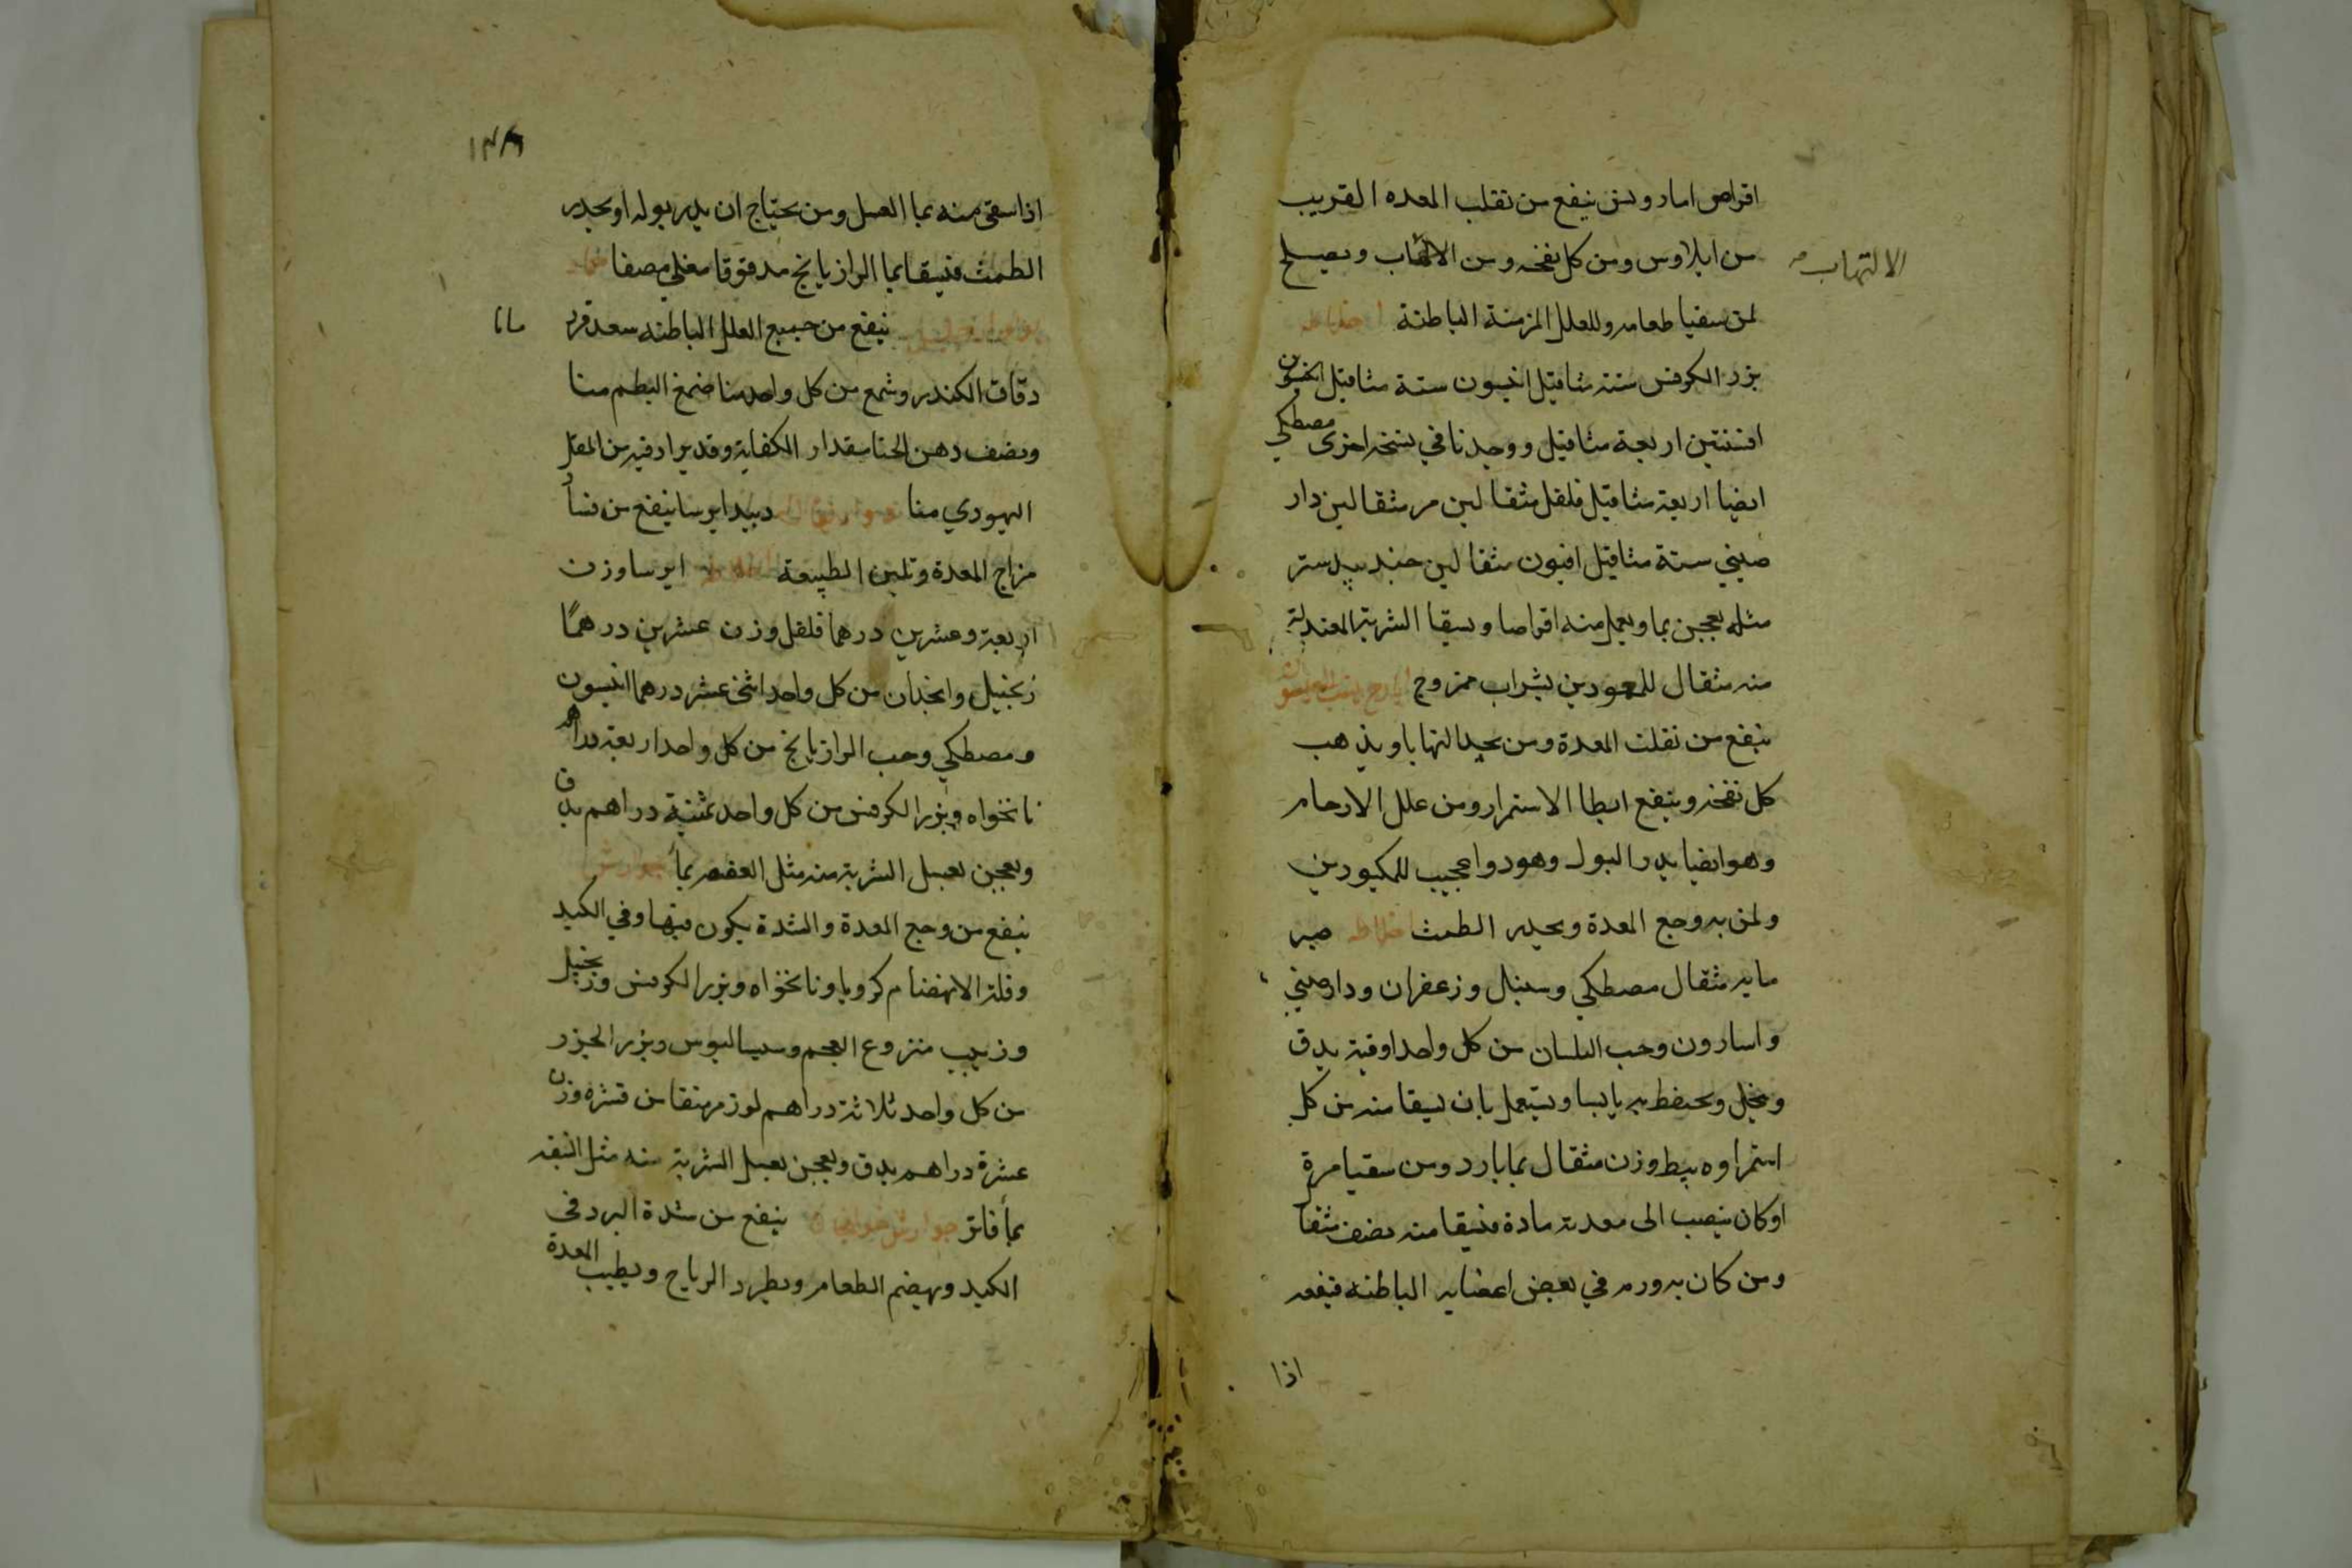 اقراص اماروىىن ينفع من تقلب المعده القريب
من ايلاوس ومن كل نفخه ومن الالتهاب ويصلح
الالتهاب
لمن سقيا طعامه وللعلل المزمنة الباطنة اخلاطه
بزر الكرفس ستة مثاقيل انيسون ستة مثاقيل
افسنتين اربعة مثاقيل ووجدنا في نسخه اخرى مصطكي
ايضا اربعة مثاقيل فلفل مثقالين مر مثقالين دار
صيني ستة مثاقيل افيون مثقالين جندبيدستر
مثله يعجن بما ويعمل منه اقراصا ويسقا الشربة المعتدلة
منه مثقال للمعودين بشراب ممزوج ايارج
ينفع من تقلب المعدة ومن يجد التهابا ويذهب
كل نفخه وينفع ابطا الاستمرار ومن علل الارحام
وهو ايضا يدر البول وهو دوا عجيب للمكبودين
ولمن به وجع المعدة ويحدر الطمث اخلاطه صبر
مايه مثقال مصطكي وسنبل وزعفران ودارصيني
واسارون وحب البلسان من كل واحد اوقية يدق
وينخل ويحتفظ به يابسا ويستعمل بان يسقا منه من كل
استمراوه يبط وزن مثقال بما بارد ومن سقيا مرة
او كان ينصب الى معدته مادة فيسقا منه نصف مثقا
ومن كان به ورم في بعض اعضايه الباطنه فينفعه
اذا
١٣٨
اذا سقي منه بما العسل ومن يحتاج ان يدر بوله او يحدر
الطمث فيسقا بما الرازيانج مدقوقا مغلي مصفا ضماد
ينفع من جميع العلل الباطنه سعد قرد مانا
دقاق الكندر وشمع من كل واحد منا ضمغ البطم منا
ونصف دهن الحنا بمقدار الكفاية وقد يزاد فيه من المقل
اليهودي منا دبيد ايرسا ينفع من فسأد
مزاج المعدة وتلين الطبيعة اخلاطه ايرسا وزن
اربعة وعشرين درهما فلفل وزن عشرين درهمًا
زنجبيل وانجدان من كل واحد اثنى عشر درهما انيسون
ومصطكي وحب الرازيانج من كل واحد اربعة دراهم
نانخواه وبزر الكرفس من كل واحد ثمنية دراهم يدق
ويعجن بعسل الشربة منه مثل العفصه بمأ جوارش
ينفع من وجع المعدة والشدة يكون فيها وفي الكبد
وقلة الانهضام كرويا ونانخواه وبزر الكرفس وزنجبيل
وزبيب منزوع العجم وسيساليوس وبزر الجزر
من كل واحد ثلاثة دراهم لوز مر منقا من قشره وزن
عشرة دراهم يدق ويعجن بعسل الشربة منه مثل النبقه
بمأ فاتر جوارش خولنجان ينفع من شدة البرد في
الكبد ويهضم الطعام ويطرد الرياح ويطيب المعدة